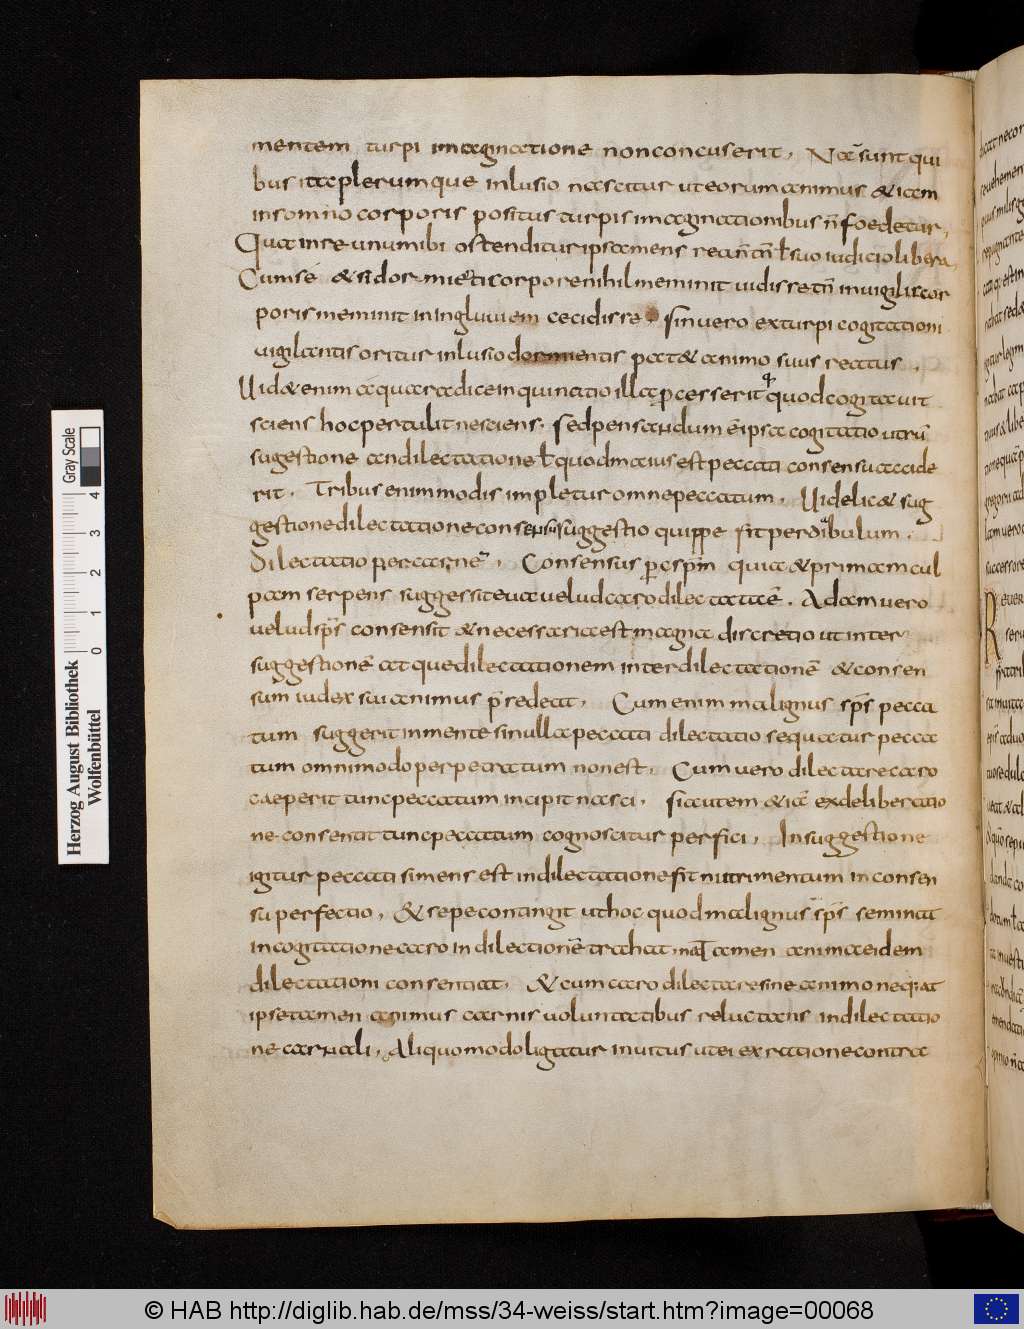 mentem turpi imaginatione nonconcuserit. Nā sunt qui
bus itaplerumque inlusio nascitur uteorumanimus & iam
insomno corporis positus turpis imaginationibus n̄ foedetur,
Qua inre unum ibi ostenditur ipsamens rea n̄ tn̄ ł suo iudicio libera,
Cum sé & si dormienti corpore nihil meminit uidisse tn̄ inuigiliis cor
poris meminit in ingluuiem cecidisse sin uero exturpi cogitationi
uigilantis oritur inlusio dormientis pat& animo suus reatus.
Uid& enim aqua radice inquinatio illa pcesserit q quod cogitauit
sciens hoc pertulit nesciens. sed pensandum ē ipsa cogitatio utrū
sugestione an dilectatione ł quod maius est peccati consensu accide
rit. Tribus enim modis impletur omne peccatum. Uidelic& sug
gestione dilectatione consensu suggestio quippe fit per diabulum.
Dilectatio per carnē. Consensus p sp̄m quia & primam cul
pam serpens suggessit eua uelud caro dilectata ē. Adam uero
uelud sp̄s consensit & necessaria est magna discretio ut inter
suggestionē atque dilectationem inter dilectationē & consen
sum iudex sui animus p̄sedeat. Cum enim malignus sp̄s pecca
tum suggerit inmente si nulla peccati dilectatio sequatur pecca
tum omnimodo perpetratum non est. Cum uero dilectare caro
caeperit tunc peccatum incipit nasci. si autem & iā ex deliberatio
ne consentit tunc peccatum cognoscitur perfici. In suggestione
igitur peccati simens est in dilectatione fit nutrimentum in consen
su perfectio. & sepe contingit ut hoc quod malignus sp̄s seminat
in cogitatione caro in dilectionē trahat nec tamen anima eidem
dilectationi consentiat. & cum caro dilectare sine animo nequeat
ipse tamen animus carnis uoluntatibus reluctans in dilectatio
ne carnali. Aliquomodo ligatur inuitus ut ei ex ratione contra
Herzog August Bibliothek
Wolfenbüttel
Gray Scale
0 1 2 3 4
© HAB http://diglib.hab.de/mss/34-weiss/start.htm?image=00068